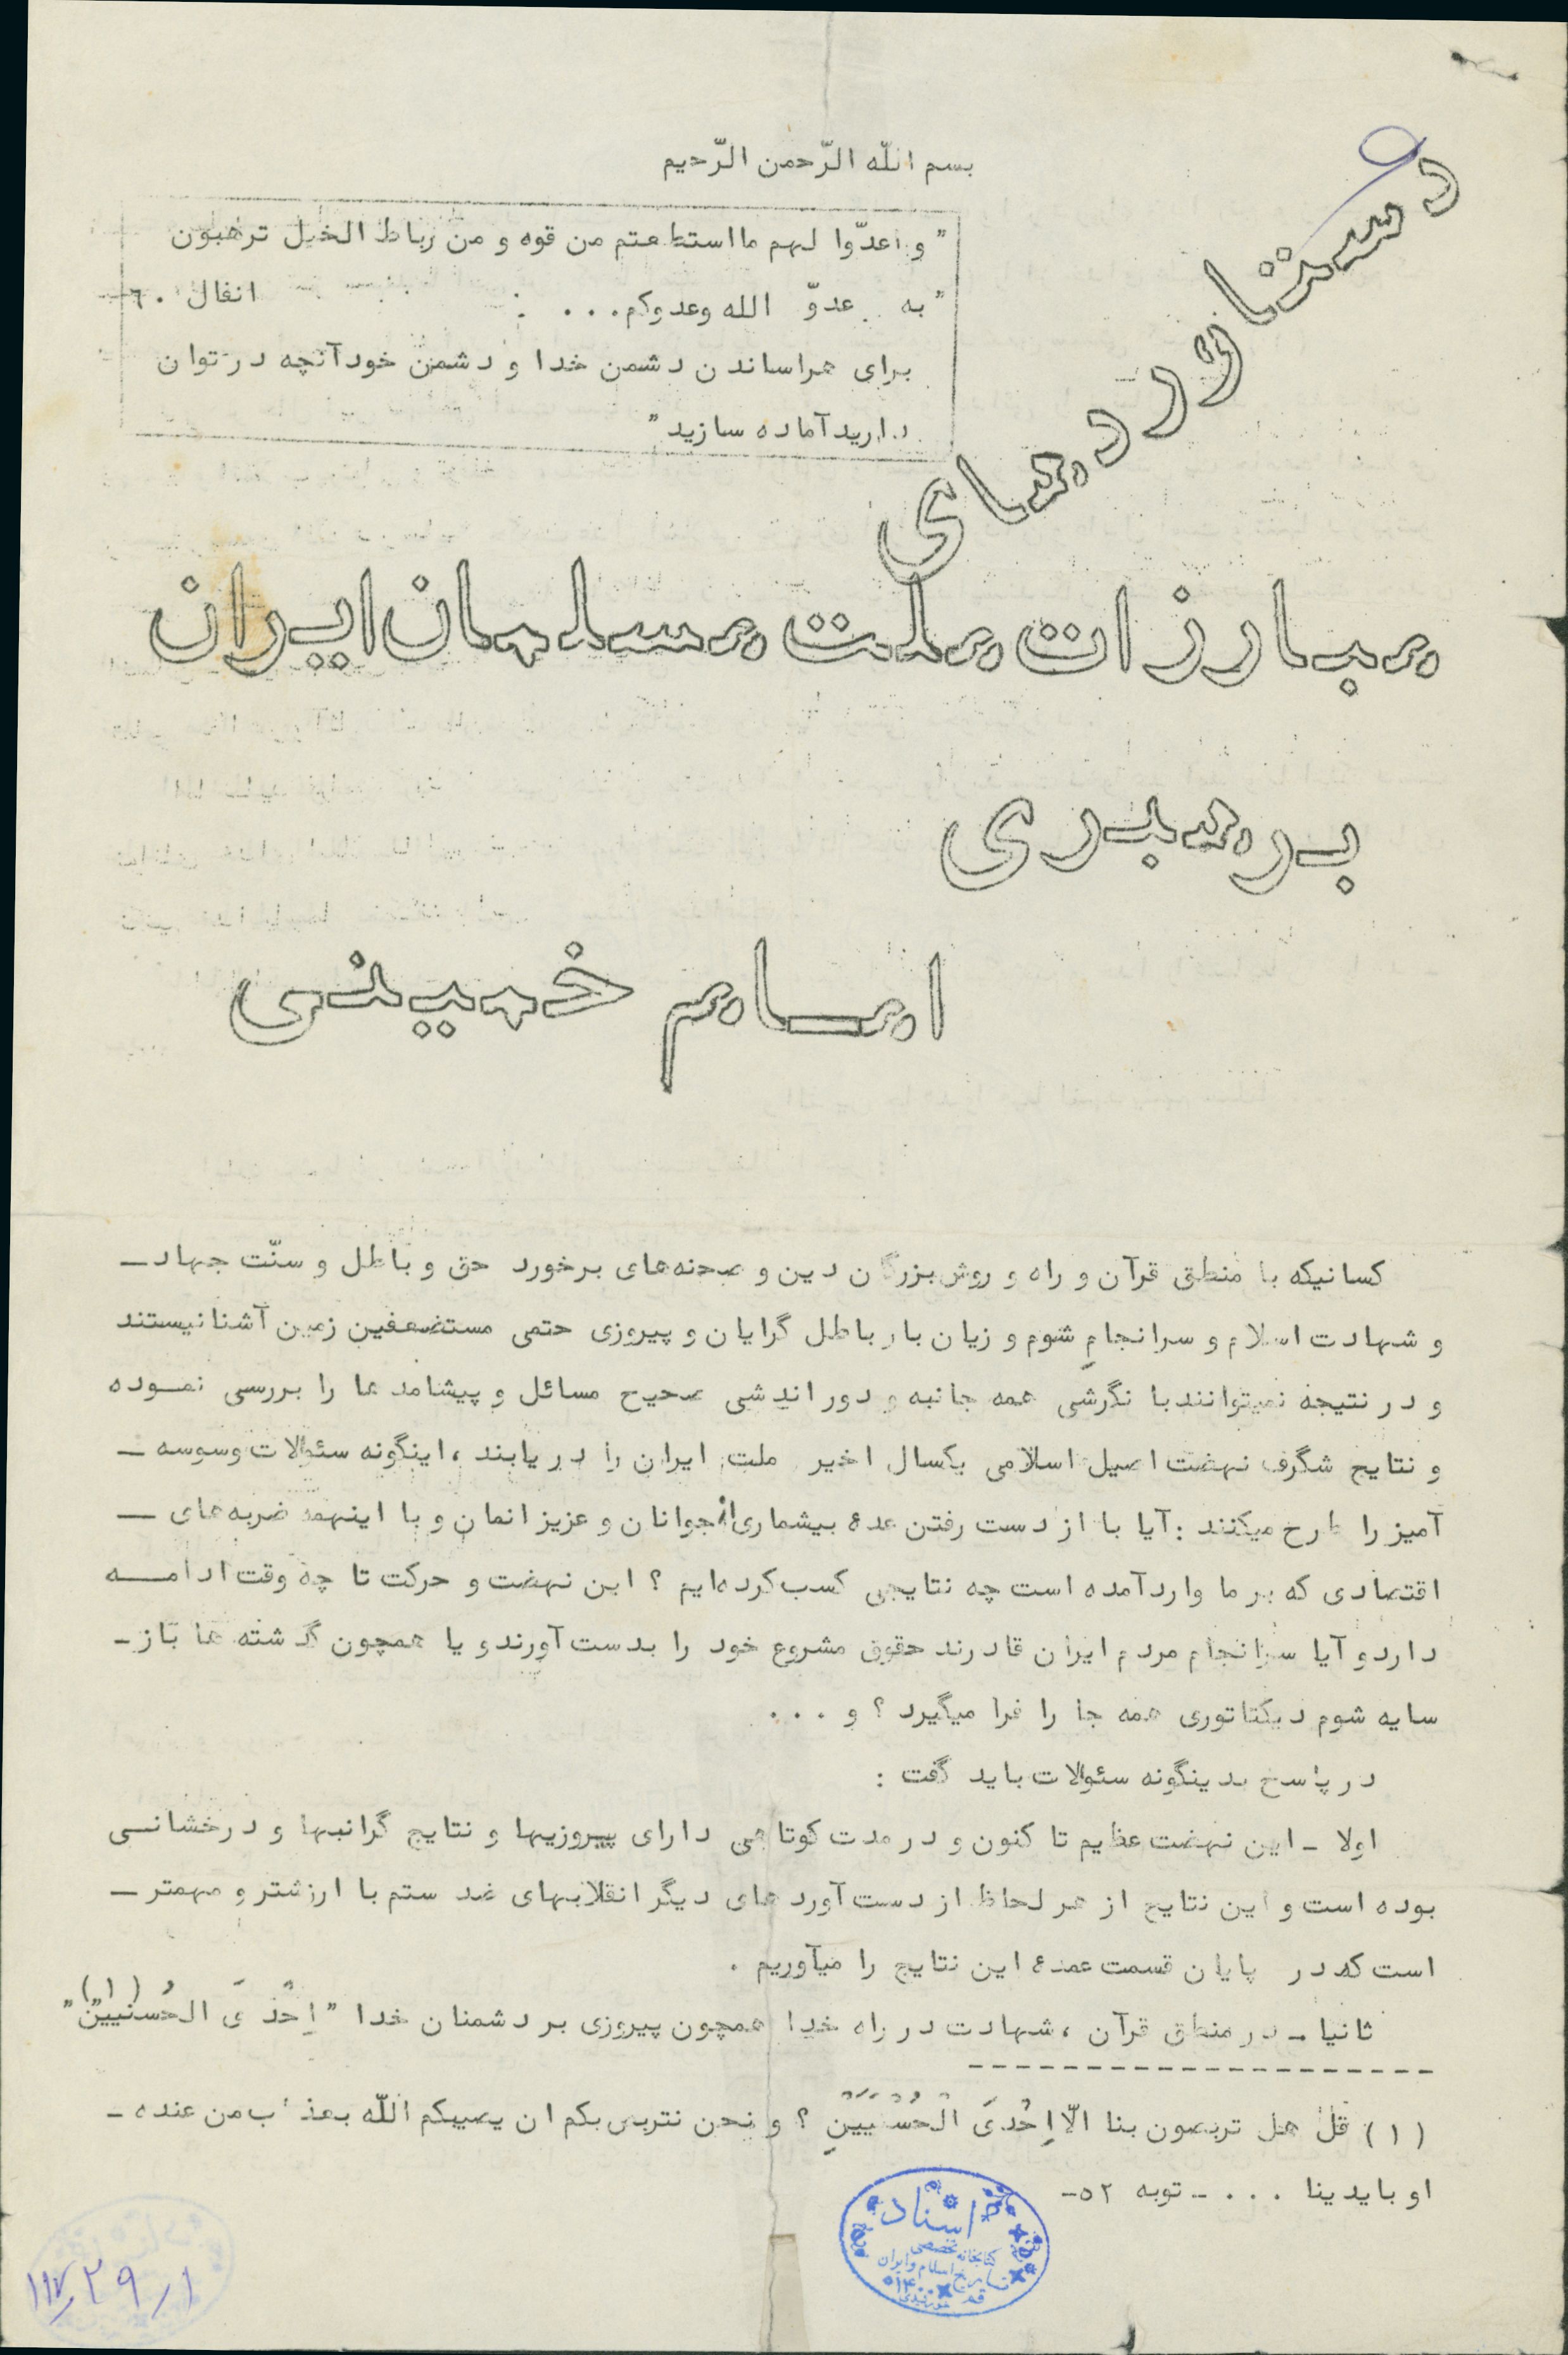 بسم الله الرّحمن الرّحیم
" و اعدّوا لهم ما استطعتم من قوه و من رباط الخیل ترهبون
به عدوّ الله وعدوکم . . . " انفال ٦٠
برای هراساندن دشمن خدا و دشمن خودآنچه درتوان
داریدآماده سازید"
دستاوردهای
مبارزات ملت مسلمان ایران
برهبری
امام خمینی
کسانیکه با منطق قرآن و راه و روش بزرگان دین و صحنه‌های برخورد حق و باطل و سنّت جهاد ــ
و شهادت اسلام و سرانجامِ شوم و زیان بار باطل گرایان و پیروزی حتمی مستضعفین زمین آشنا نیستند
و در نتیجه نمیتوانند با نگرشی همه جانبه و دور اندشی صحیح مسائل و پیشامدها را بررسی نمـوده
و نتایج شگرف نهضت اصیل اسلامی یکسال اخیر ملت ایران را دریابند ، اینگونه سئوالات وسوسه ــ
آمیز را طرح میکنند : آیا با از دست رفتن عدهٔ بیشماری از جوانان و عزیزانمان و با اینهمه ضربه‌های ــ
اقتصادی که بر ما وارد آمده است چه نتایجی کسب کرده‌ایم ؟ این نهضت و حرکت تا چه وقت ادامــه
دارد و آیا سرانجام مردم ایران قادرند حقوق مشروع خود را بدست آورند و یا همچون گذشته ها باز ـ
سایه شوم دیکتاتوری همه جا را فرا میگیرد ؟ و . . .
در پاسخ بدینگونه سئوالات باید گفت :
اولا ـ این نهضت عظیم تا کنون و در مدت کوتاهی دارای پیروزیها و نتایج گرانبها و درخشانـی
بوده است و این نتایج از هر لحاظ از دست آورد های دیگر انقلابهای ضد ستم با ارزشتر و مهمتر ــ
است که در پایان قسمت عمدهٔ این نتایج را میآوریم .
ثانیا ـ در منطق قرآن ، شهادت در راه خدا همچون پیروزی بر دشمنان خدا " اِحْدَی الحُسنیین" (١)
(١) قل هل تربصون بنا الّا اِحْدَی الْحُسْنَیَیْنِ ؟ و نحن نتربص بکم ان یصیبکم الله بعذاب من عنده ـ
او بایدینا . . . ـ توبه ٥٢-
اسناد
کتابخانه تخصصی
تاریخ اسلام و ایران